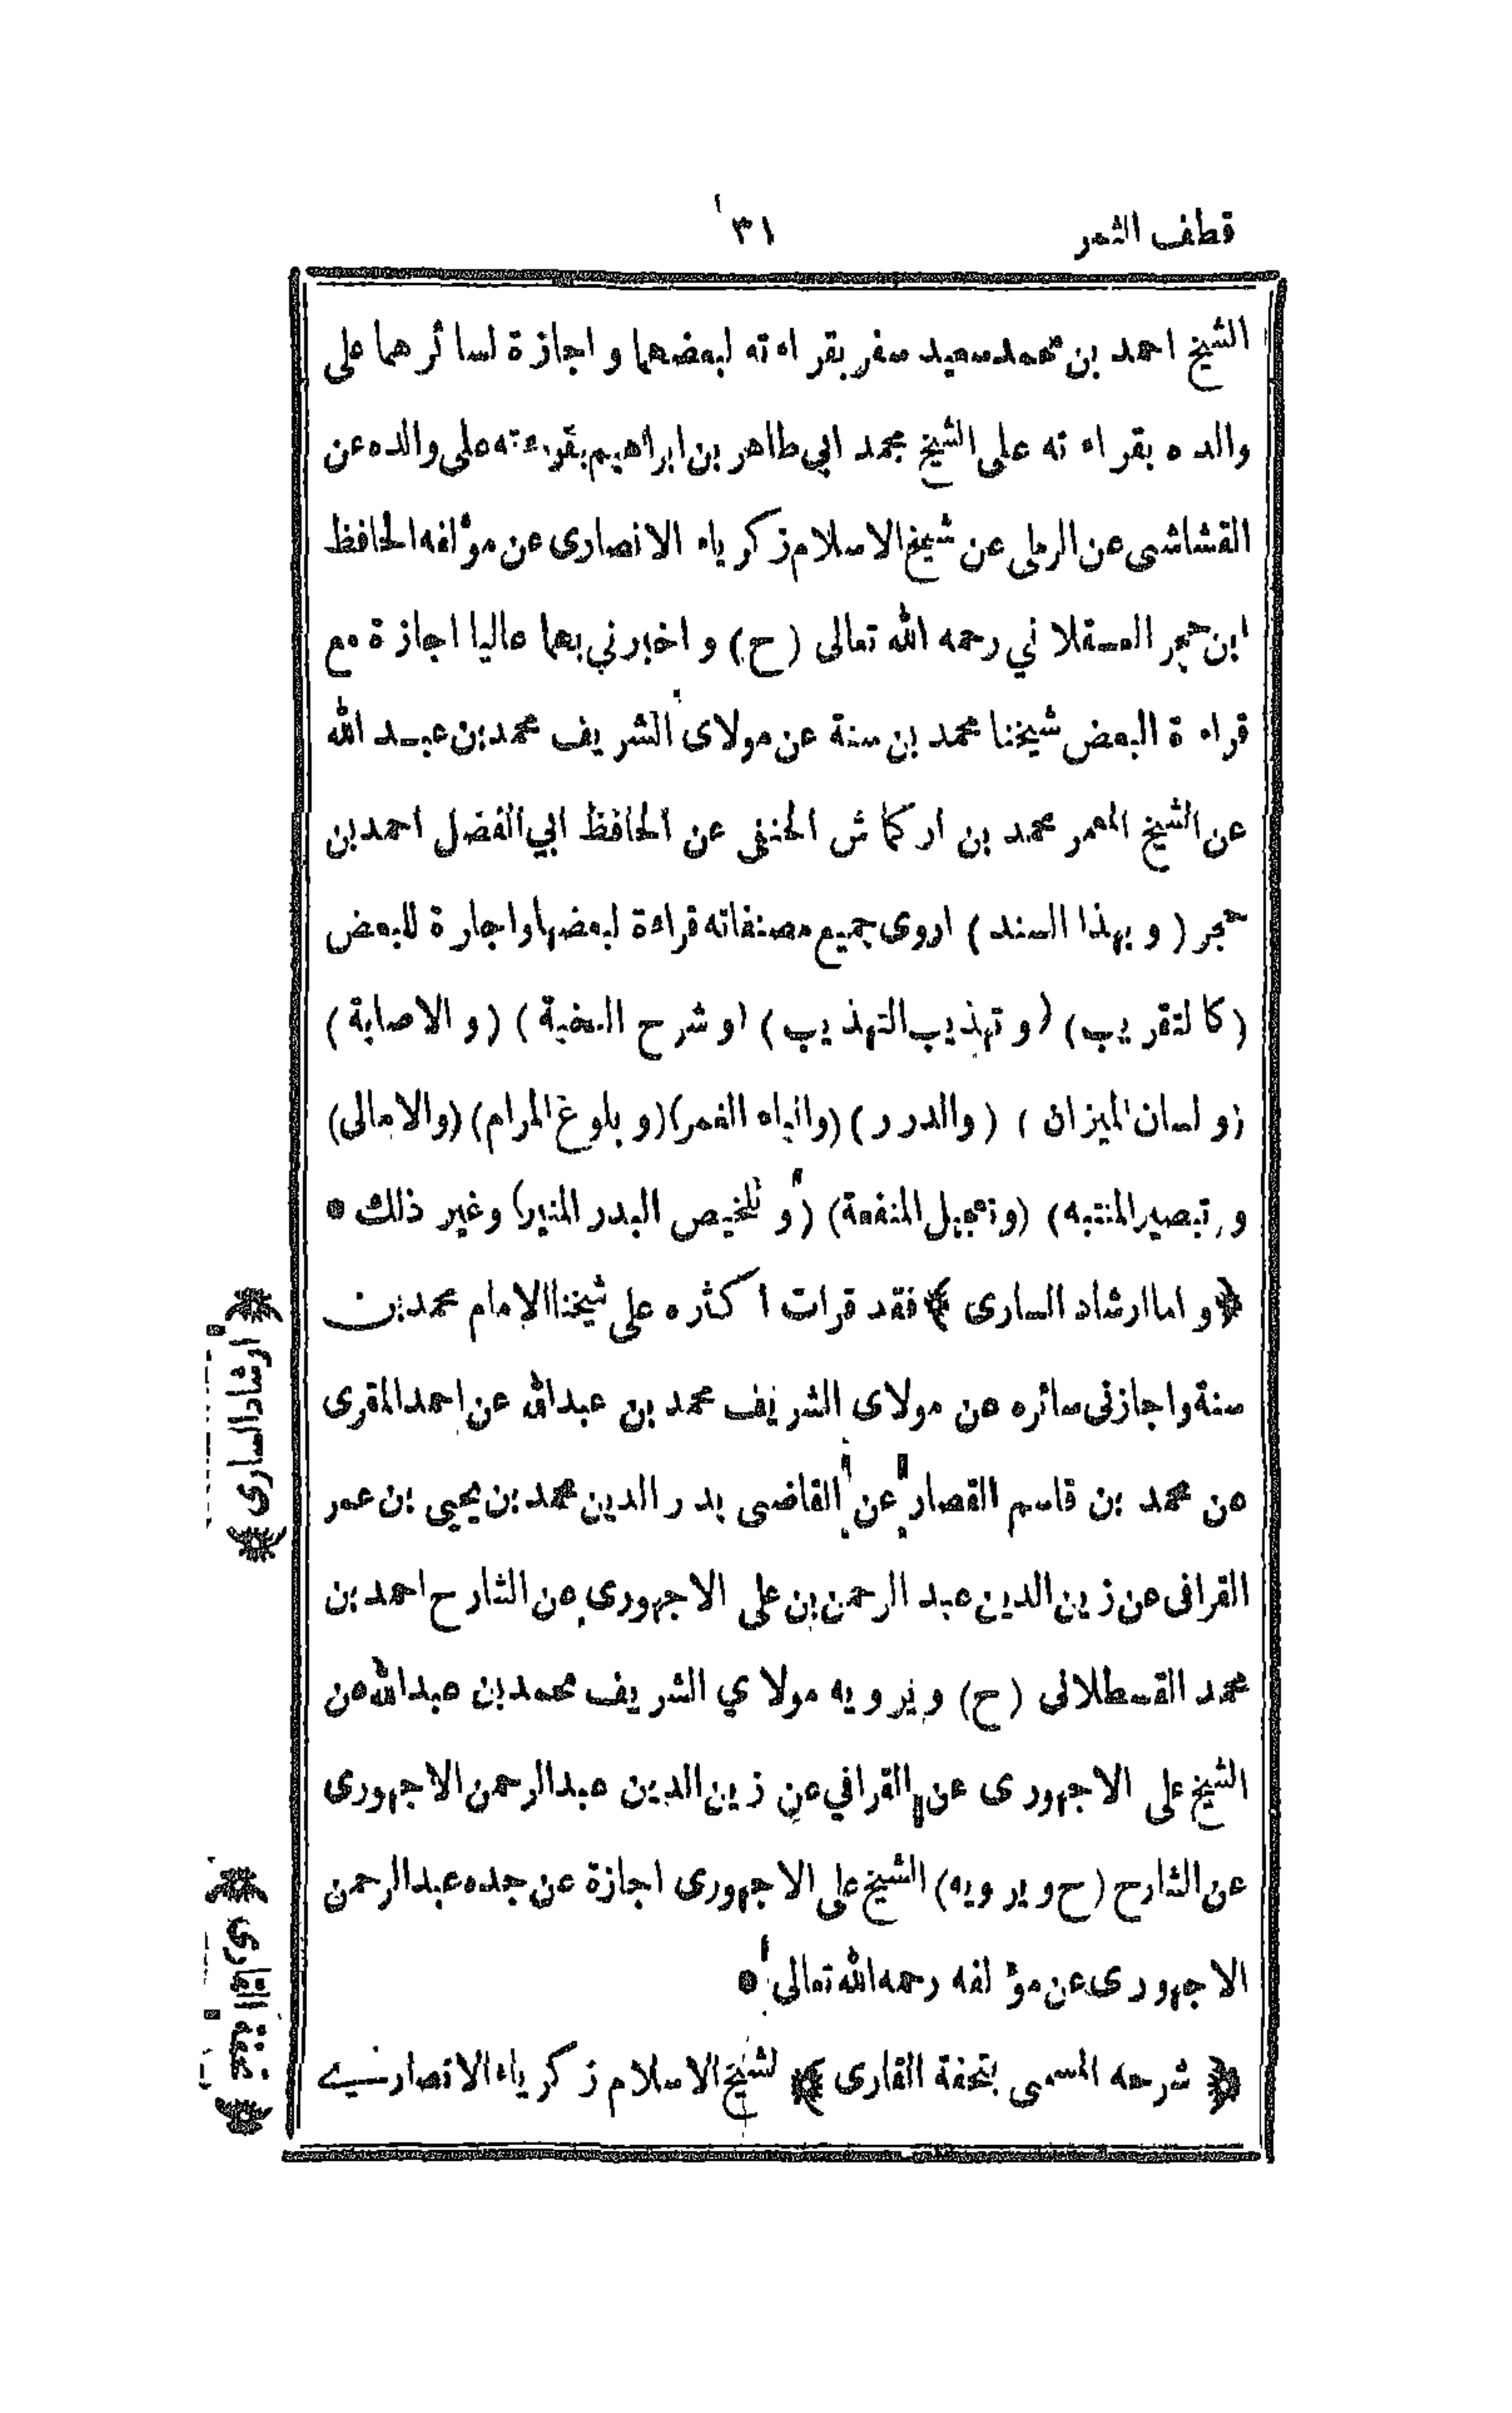 قطف الثمر
٣١
الشيخ احمد بن محمد سعيد سفر بقراءته لبعضها و اجازة لسائرهما على
والده بقراءته على الشيخ محمد ابي طاهر بن ابراهيم بقرءته على والده عن
القشاشى عن الرملى عن شيخ الاسلام زكرياء الانصارى عن مؤلفه الحافظ
ابن حجر العسقلاني رحمه الله تعالى (ح) و اخبرني بهما عاليا اجازة مع
قراءة البعض شيخنا محمد بن سنة عن مولاى الشريف محمد بن عبد الله
عن الشيخ المعمر محمد بن اركماش الحنفى عن الحافظ ابي الفضل احمد بن
حجر (و بهذا السند) اروى جميع مصنفاته قراءة لبعضها واجارة للبعض
(كالتقريب) (و تهذيب التهذيب) (و شرح النخبة) (و الاصابة)
(و لسان الميزان) (والدرر) (وانباء الغمر) (و بلوغ المرام) (والامالى)
و تبصير المنتبه) (وتعجيل المنفعة) (و تلخيص البدر المنير) وغير ذلك ●
﴿و اما ارشاد السارى﴾ فقد قرات اكثره على شيخنا الامام محمد بن
سنة واجازنى سائره عن مولاى الشريف محمد بن عبدالله عن احمد المقرى
عن محمد بن قاسم القصار عن القاضى بدر الدين محمد بن يحيى بن عمر
القرافى عن زين الدين عبد الرحمن بن على الاجهورى عن الشارح احمد بن
محمد القسطلانى (ح) و يرويه مولاي الشريف محمد بن عبدالله عن
الشيخ على الاجهورى عن القرافي عن زين الدين عبدالرحمن الاجهورى
عن الشارح (ح و يرويه) الشيخ على الاجهورى اجازة عن جده عبدالرحمن
الاجهورى عن مؤلفه رحمه الله تعالى ●
﴿شرحه المسمى بتحفة القارى﴾ لشيخ الاسلام زكرياء الانصارى
ارشاد السارى
تحفة القارى